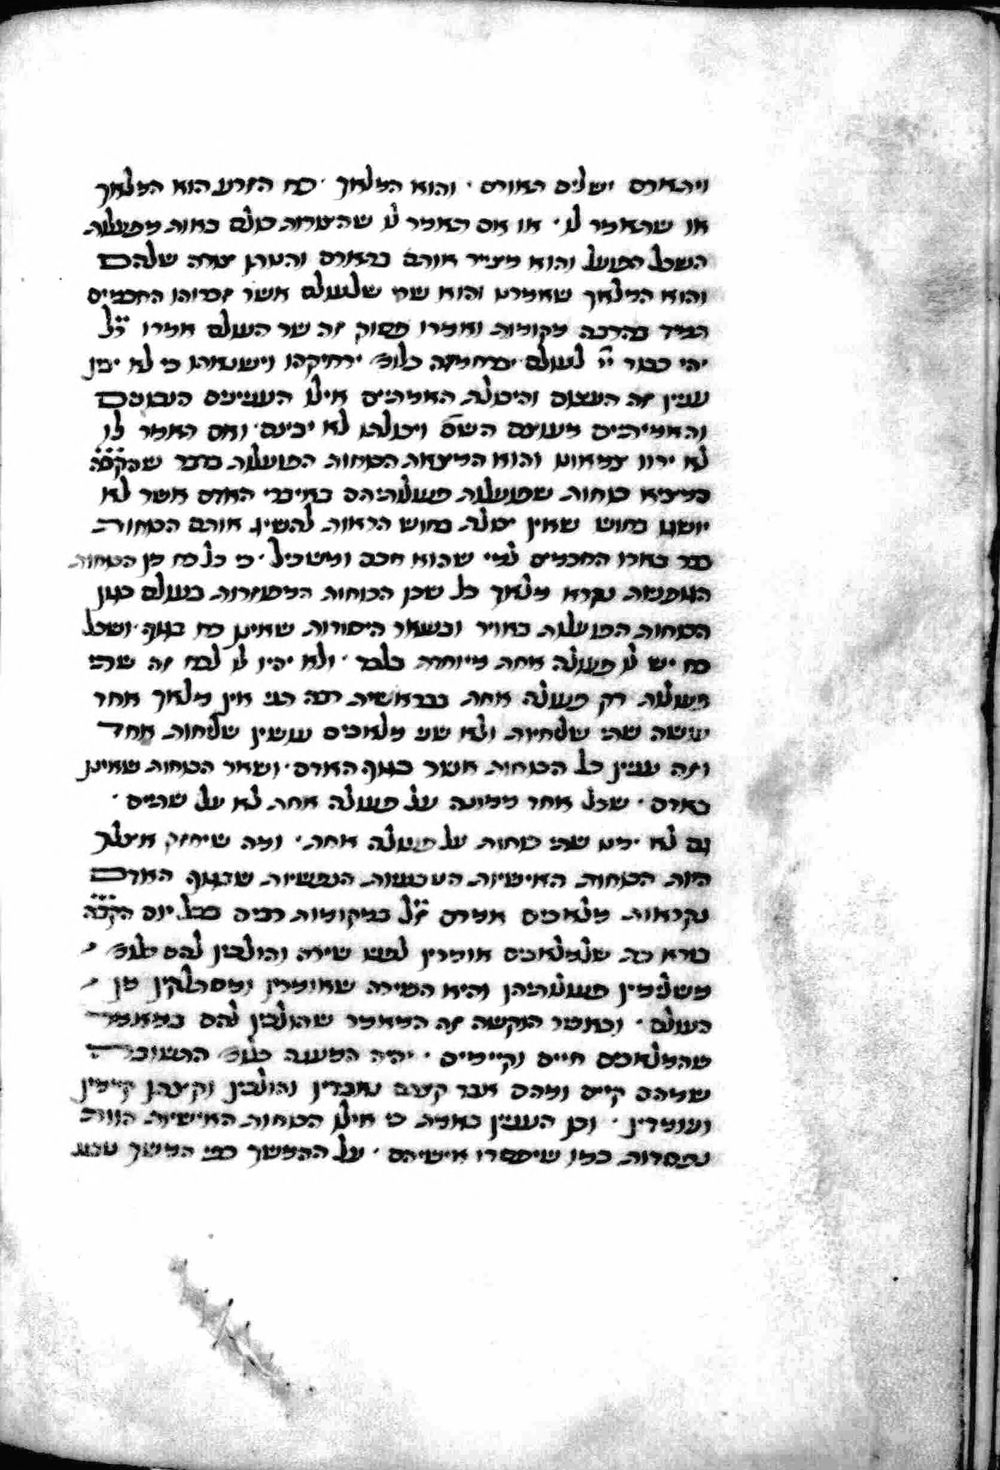 ויתארם ישלים תארם · והוא המלאך · כח הזרע הוא המלאך
או שתאמר לו · או אם תאמר לו שהצורות כולם באות מפעולת
השכל הפועל והוא מצייר אותם בתארם והנותן צורה שלהם
והוא המלאך שאמרנו והוא שרו שלעולם אשר זכרוהו החכמים
תמיד בהרבה מקומות ואמרו פסוק זה שר העולם אמרו ז״ל
יהי כבוד יי לעולם יברח מזה כלומ׳ ירחיקהו וישנאהו כי לא יבין
עניין זה העוצם והיכולת האמתיים אילו העניינים הנכונים
והאמיתיים מעוצם השם ויכולתו לא יבינם · ואם תאמר לו
לא ידוו צמאונו והוא המצאת הכוחות הפועלות בדבר שהקב״ה
המציא כוחות שפועלות פעולותיהם באיברי האדם אשר לא
יושגו בחוש שאין יכולת בחוש הראות להשיג אותם הכוחות
כבר בארו החכמים למי שהוא חכם ומשכיל · כי כל כח מן הכוחות
הנופשות נקרא מלאך כל שכן הכוחות המפוזרות בעולם כגון
הכוחות הפועלות באויר ובשאר היסודות שאינן כח בגוף · ושכל
כח יש לו פעולה אחת מיוחדת בלבד · ולא יהיו לו לכח זה שתי
פעולות רק פעולה אחת בבראשית רבה תני אין מלאך אחד
עושה שתי שליחות ולא שני מלאכים עושין שליחות אחד
וזה עניין כל הכוחות אשר בגוף האדם · ושאר הכוחות שאינן
באדם · שכל אחד ממונה על פעולה אחת לא על שתים ·
גם לא ימנו שתי כוחות על פעולה אחת · ומה שיחזק אצלך
היות הכוחות האישיות הטבעיות הנפשיות שבגוף האדם
נקראות מלאכים אמרם ז״ל במקומות רבים בכל יום הקב״ה
בורא כת שלמלאכים אומרין לפניו שירה והולכין להם כלומ׳
משלימין פעולותיהן והיא השירה שאומרין ומסתלקין מן
העולם · וכאשר הוקשה זה המאמר שהולכין להם במאמר
שהמלאכים חיים וקיימים · יהיה המענה כלומ׳ התשובה
שמהם קיים ומהם אבד קצתם עוברין והולכין וקצתן קיימין
ועומדין · וכן העניין באמת כי אילו הכוחות האישיות הוות
נפסדות כמו שיפסדו אישיהם · על ההמשך כפי המשך טבע